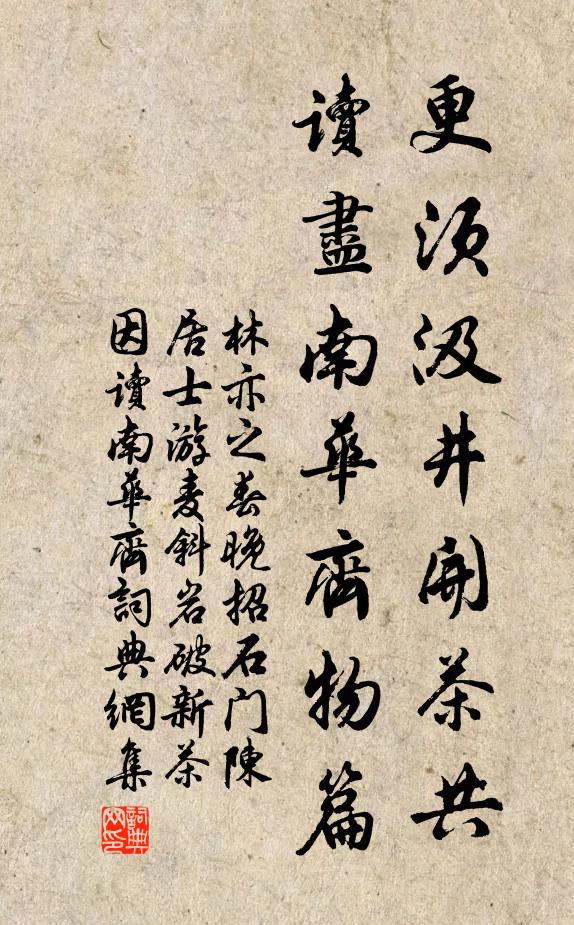 更須汲井開茶共
讀盡南華齊物篇
林亦之春晚招石门陳
居士游麦斜岩破新茶
因讀南華齊詞典網集
詞典
网印